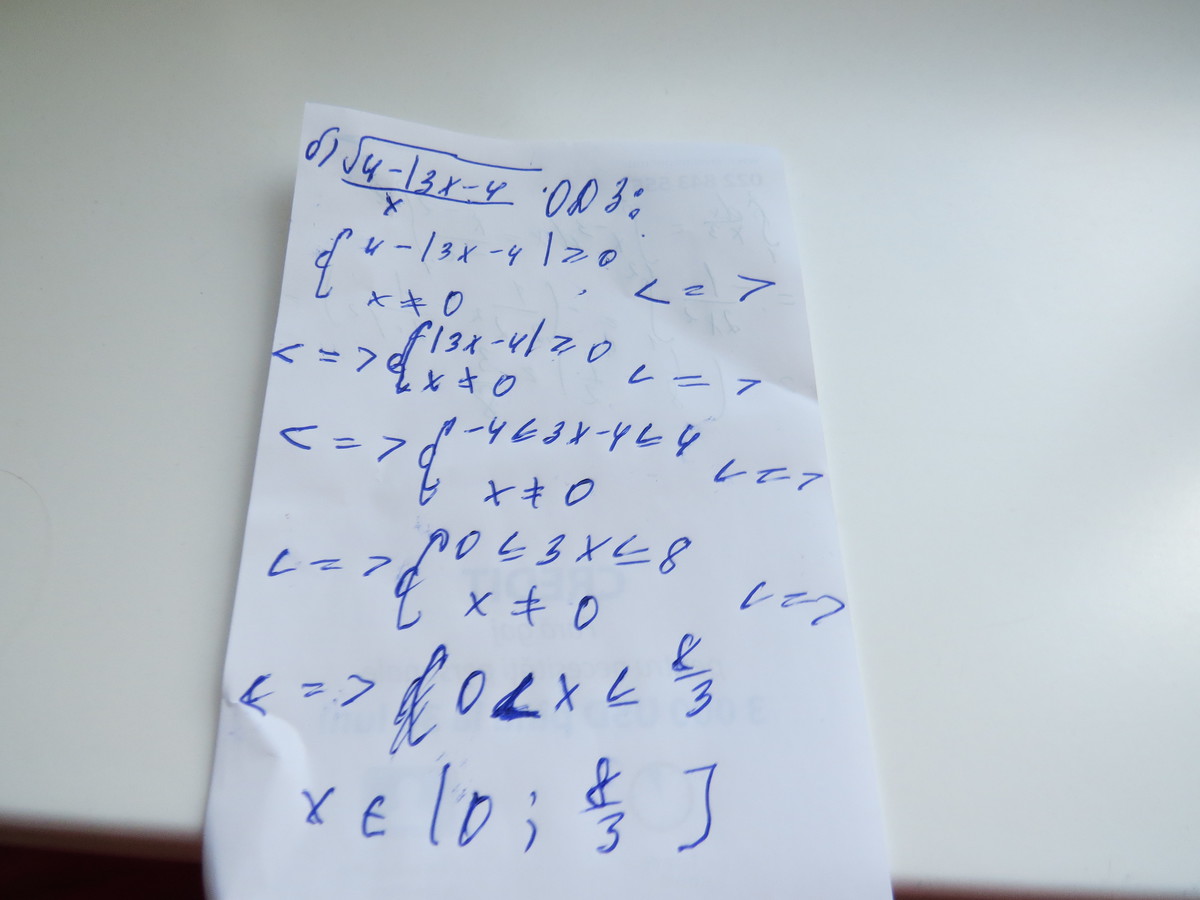 б) √4-|3x-4
x
ОДЗ:
{ 4-|3x-4|≥0
x≠0 <=>
<=> { |3x-4|≥0
x≠0 <=>
<=> { -4≤3x-4≤4
x≠0 <=>
<=> { 0≤3x≤8
x≠0 <=>
<=> { 0<x≤ 8/3
x∈(0; 8/3]
CREDIT